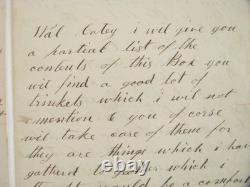 Wal Cotey i wil give you
a partial list of the
contents of this Box you
wil find a good lot of
trinkets which i wil not
mention to you of corse
wil take care of them for
they are things which i have
gatherd to gather which i
would be a